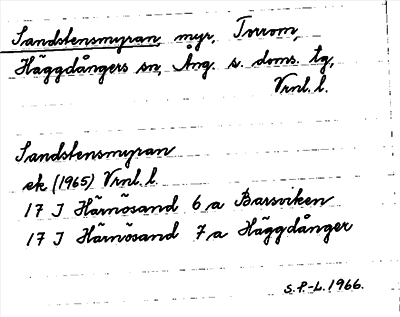 Sandstensmyran, myr, Torrom,
Häggdångers sn, Ång. s. doms. tg,
Vrnl. l.
Sandstensmyran
ek (1965) Vrnl. l.
17 I Härnösand 6 a Barsviken
17 I Härnösand 7 a Häggdånger
S.P.-L. 1966.